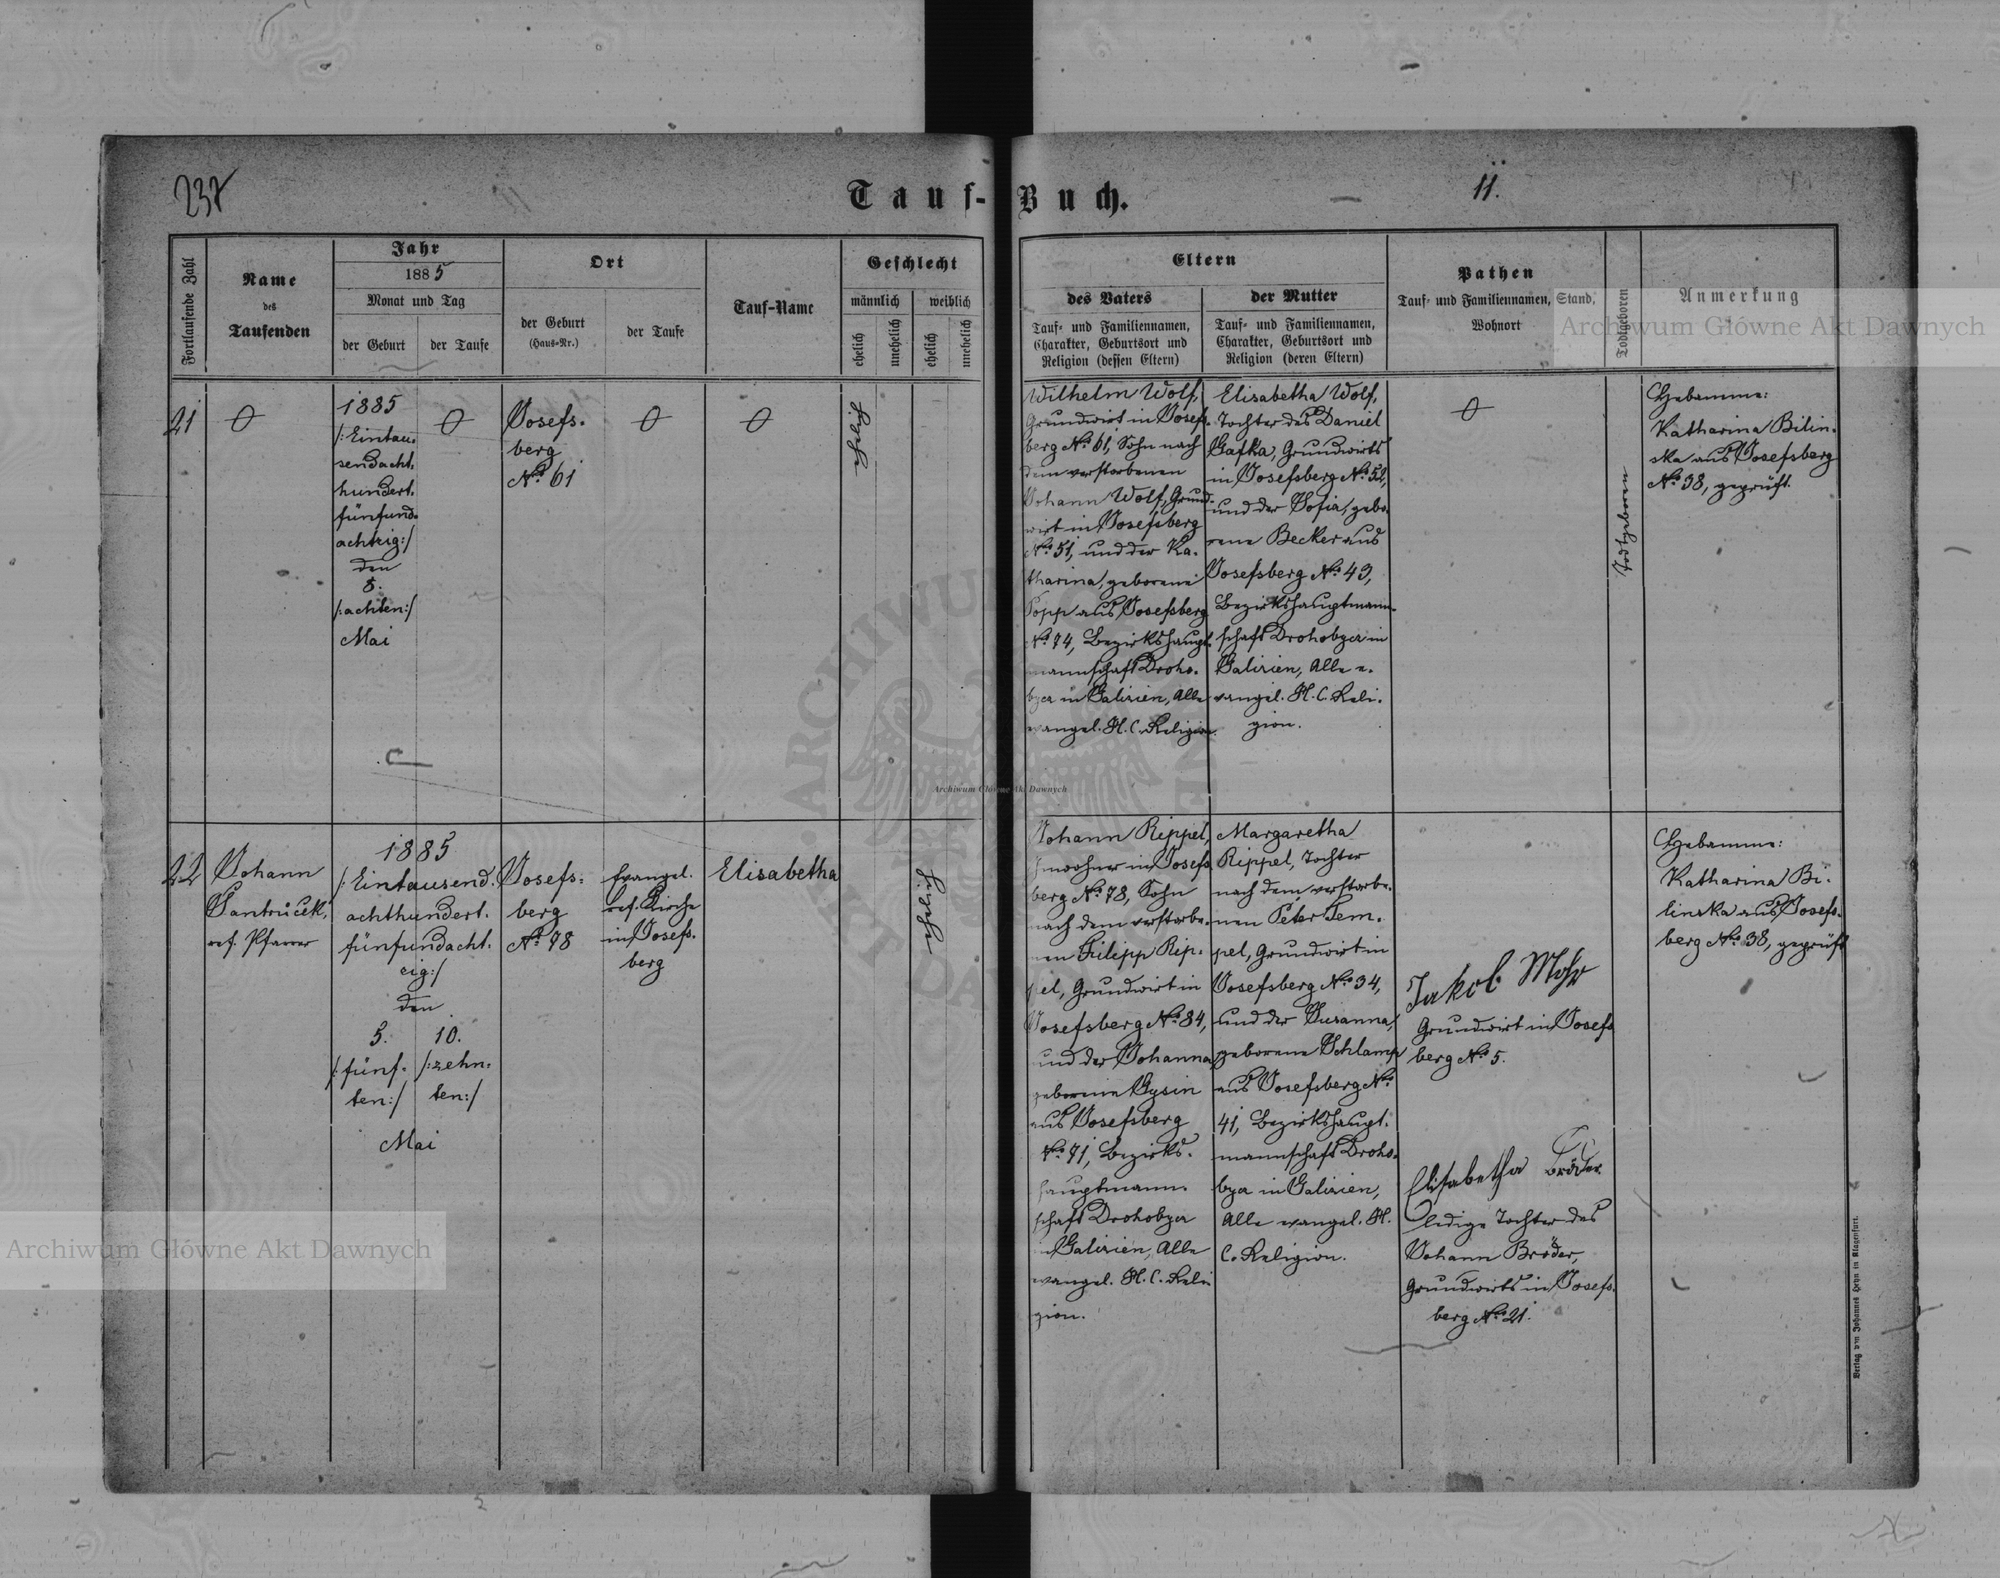 237
11.
Tauf-Buch.
Fortlaufende Zahl
Name
des
Taufenden
Jahr
1885
Monat und Tag
der Geburt
der Taufe
Ort
der Geburt
(Haus-Nr.)
der Taufe
Tauf-Name
Geschlecht
männlich
weiblich
ehelich
unehelich
ehelich
unehelich
Eltern
des Vaters
Tauf- und Familiennamen,
Charakter, Geburtsort und
Religion (dessen Eltern)
der Mutter
Tauf- und Familiennamen,
Charakter, Geburtsort und
Religion (deren Eltern)
Pathen
Tauf- und Familiennamen, Stand,
Wohnort
Todtgeboren
Anmerkung
21
1885
/:Eintau-
sendacht-
hundert-
fünfund-
achtzig:/
den
8.
/:achten:/
Mai
Josefs-
berg
No. 61
ehelich
Wilhelm Wolf,
Grundwirt in Josefs-
berg No. 61, Sohn nach
dem verstorbenen
Johann Wolf, Grund-
wirt in Josefsberg
No. 51, und der Ka-
tharina, geborene
Popp aus Josefsberg
No. 74, Bezirkshaupt-
mannschaft Droho-
bycz in Galizien, Alle
evangel. H. C. Religion.
Elisabetha Wolf,
Tochter des Daniel
Gafka, Grundwirts
in Josefsberg No. 52,
und der Sofia, gebo-
rene Becker aus
Josefsberg No. 43,
Bezirkshauptmann-
schaft Drohobycz in
Galizien, Alle e-
vangel. H. C. Reli-
gion.
Todtgeboren
Hebamme:
Katharina Bilin-
ska aus Josefsberg
No. 38, geprüft.
22
Johann
Jantrůček,
ref. Pfarrer
1885
/:Eintausend-
achthundert-
fünfundacht-
zig:/
den
5.
/:fünf-
ten:/
10.
/:zehn-
ten:/
Mai
Josefs-
berg
No. 78
Evangel.
ref. Kirche
in Josefs-
berg
Elisabetha
ehelich
Johann Rippel,
Inwohner in Josefs-
berg No. 78, Sohn
nach dem verstorbe-
nen Filipp Rip-
pel, Grundwirt in
Josefsberg No. 84,
und der Johanna,
geborene Gysin
aus Josefsberg
No. 71, Bezirks-
hauptmann-
schaft Drohobycz
in Galizien, Alle
evangel. H. C. Reli-
gion.
Margaretha
Rippel, Tochter
nach dem verstorbe-
nen Peter Tem-
pel, Grundwirt in
Josefsberg No. 34,
und der Susanna,
geborene Schlamp
aus Josefsberg No.
41, Bezirkshaupt-
mannschaft Droho-
bycz in Galizien,
Alle evangel. H.
C. Religion.
Jakob Mohr
Grundwirt in Josefs-
berg No. 5.
Elisabetha Bröder
ledige Tochter des
Johann Bröder,
Grundwirts in Josefs-
berg No. 21.
Hebamme:
Katharina Bi-
linska aus Josefs-
berg No. 38, geprüft
Verlag von Johannes Heyn in Klagenfurt.
Archiwum Główne Akt Dawnych
Archiwum Główne Akt Dawnych
Archiwum Główne Akt Dawnych